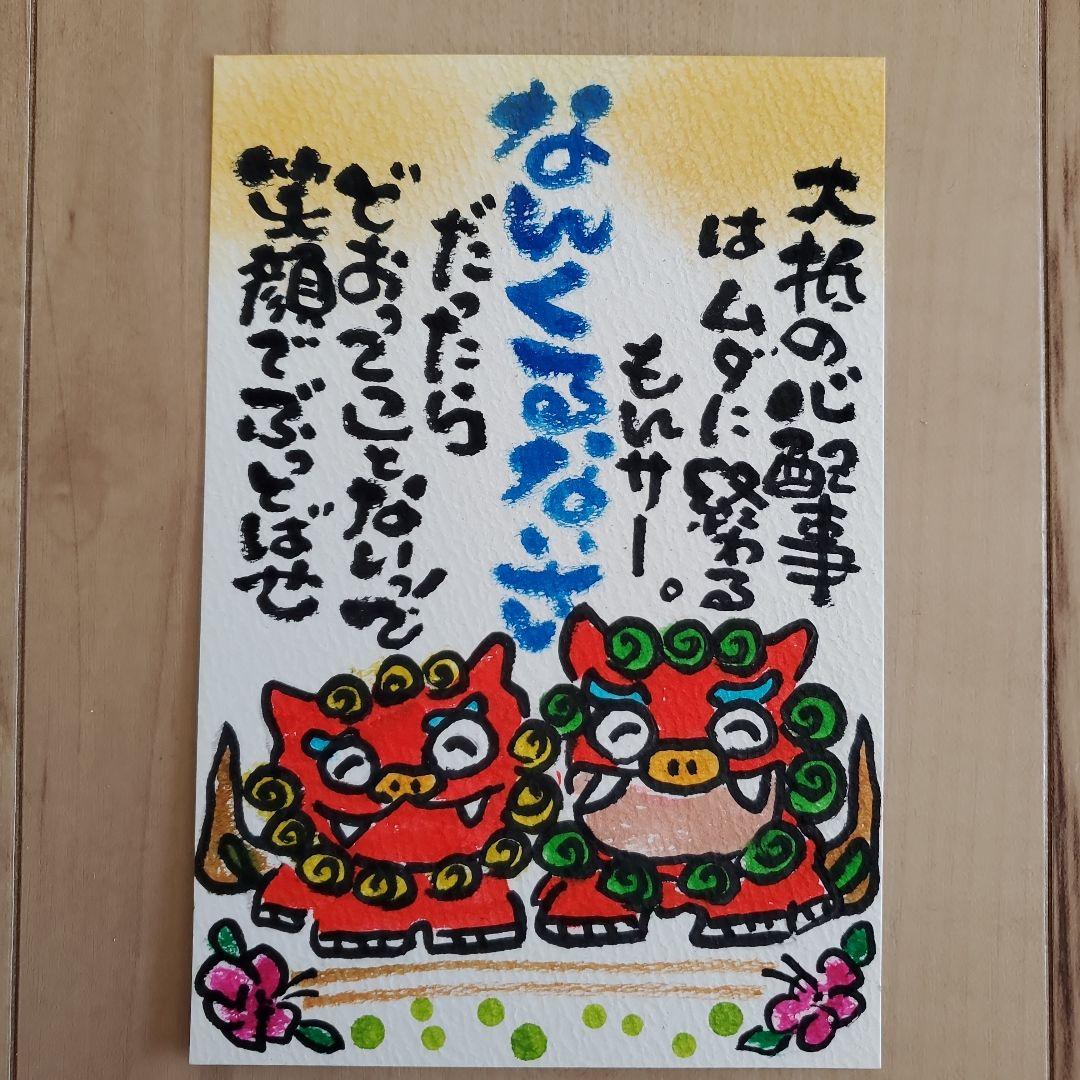 大抵の心配事
はムダに終わる
もんサー。
なんくるないさ
だったら
どおってことないって
笑顔でぶっとばせ